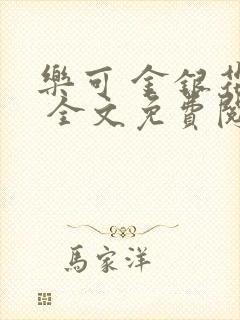 樂可 金銀花
全文免費閱
馬家洋